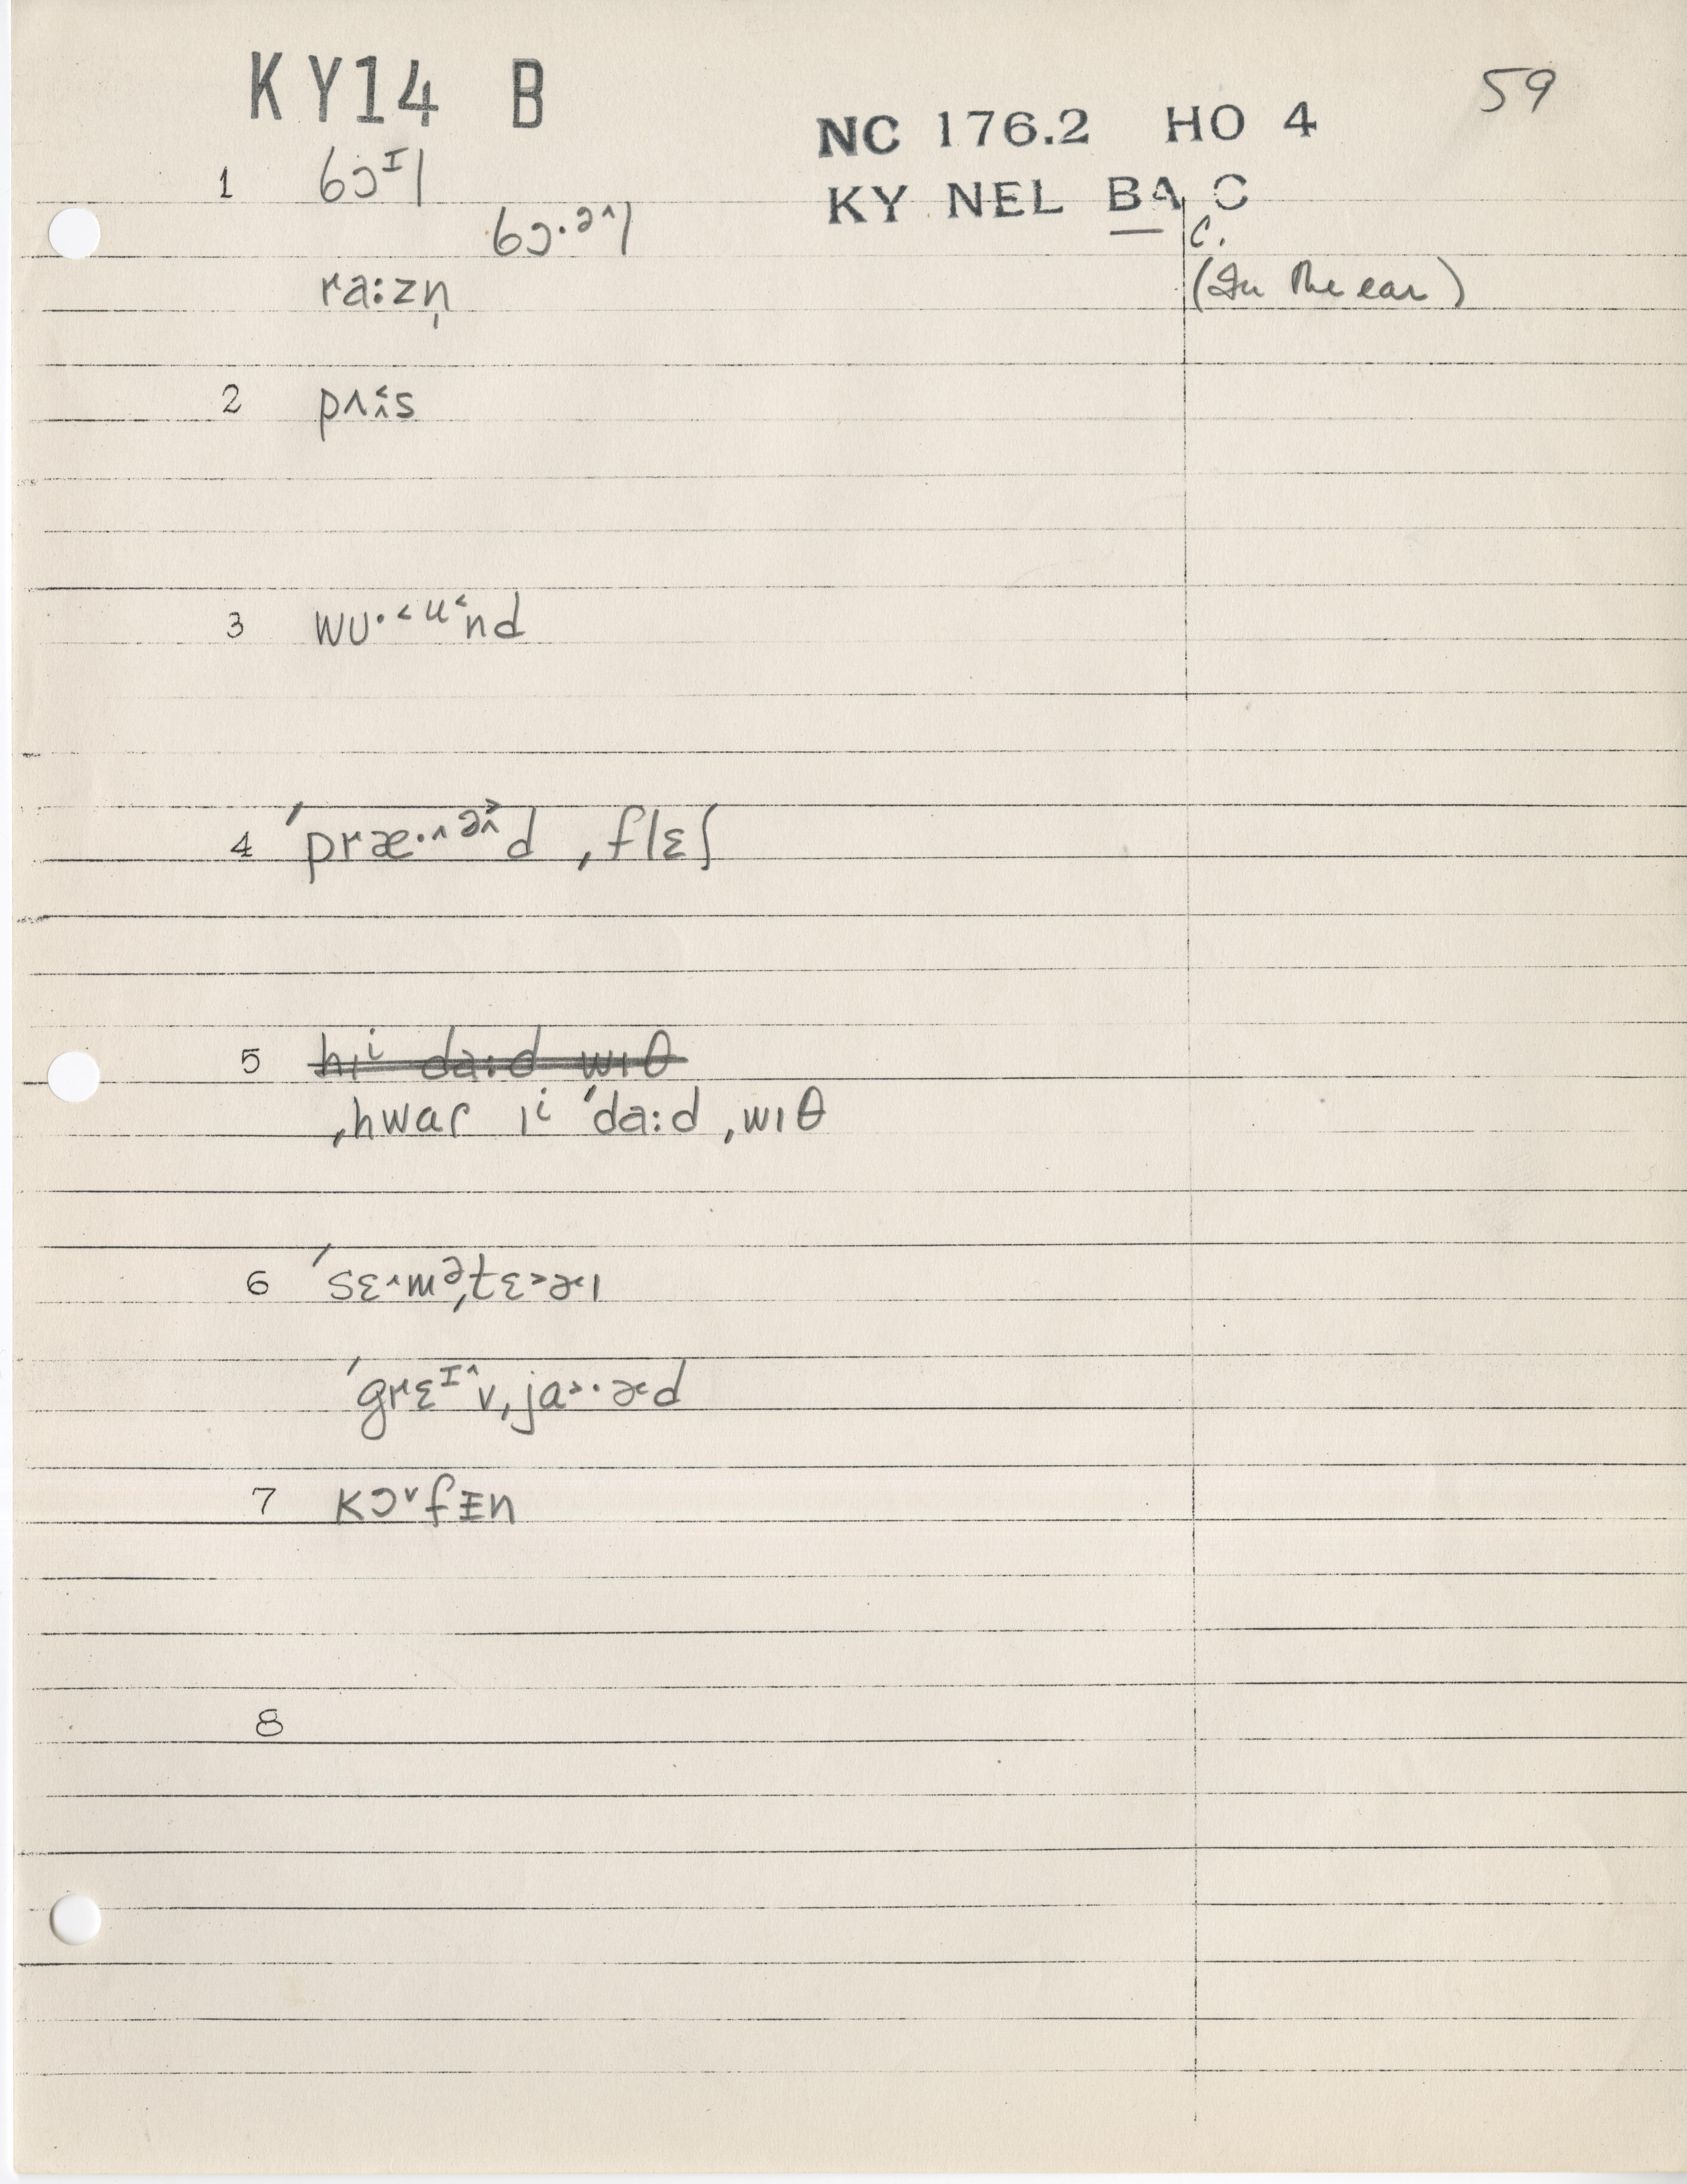 KY14 B
59
NC 176.2 HO 4
KY NEL BA C
1 bɔᴵl
bɔ·ə^l
c.
ra:zn̩
(In the ear)
2
3 wʊ·˂ᵘ˂nd
4 ˈpræ·^ə̂˃d ˌflɛʃ
5 hɪⁱ da:d wɪθ
ˌhwaɾ ɪⁱ ˈda:d ˌwɪθ
6 ˈsɛ^məˌtɛ˃ɚɪ
ˈgrɛᴵ^vˌja˃·ɚd
7 kɔ˅fɪ̵n
8